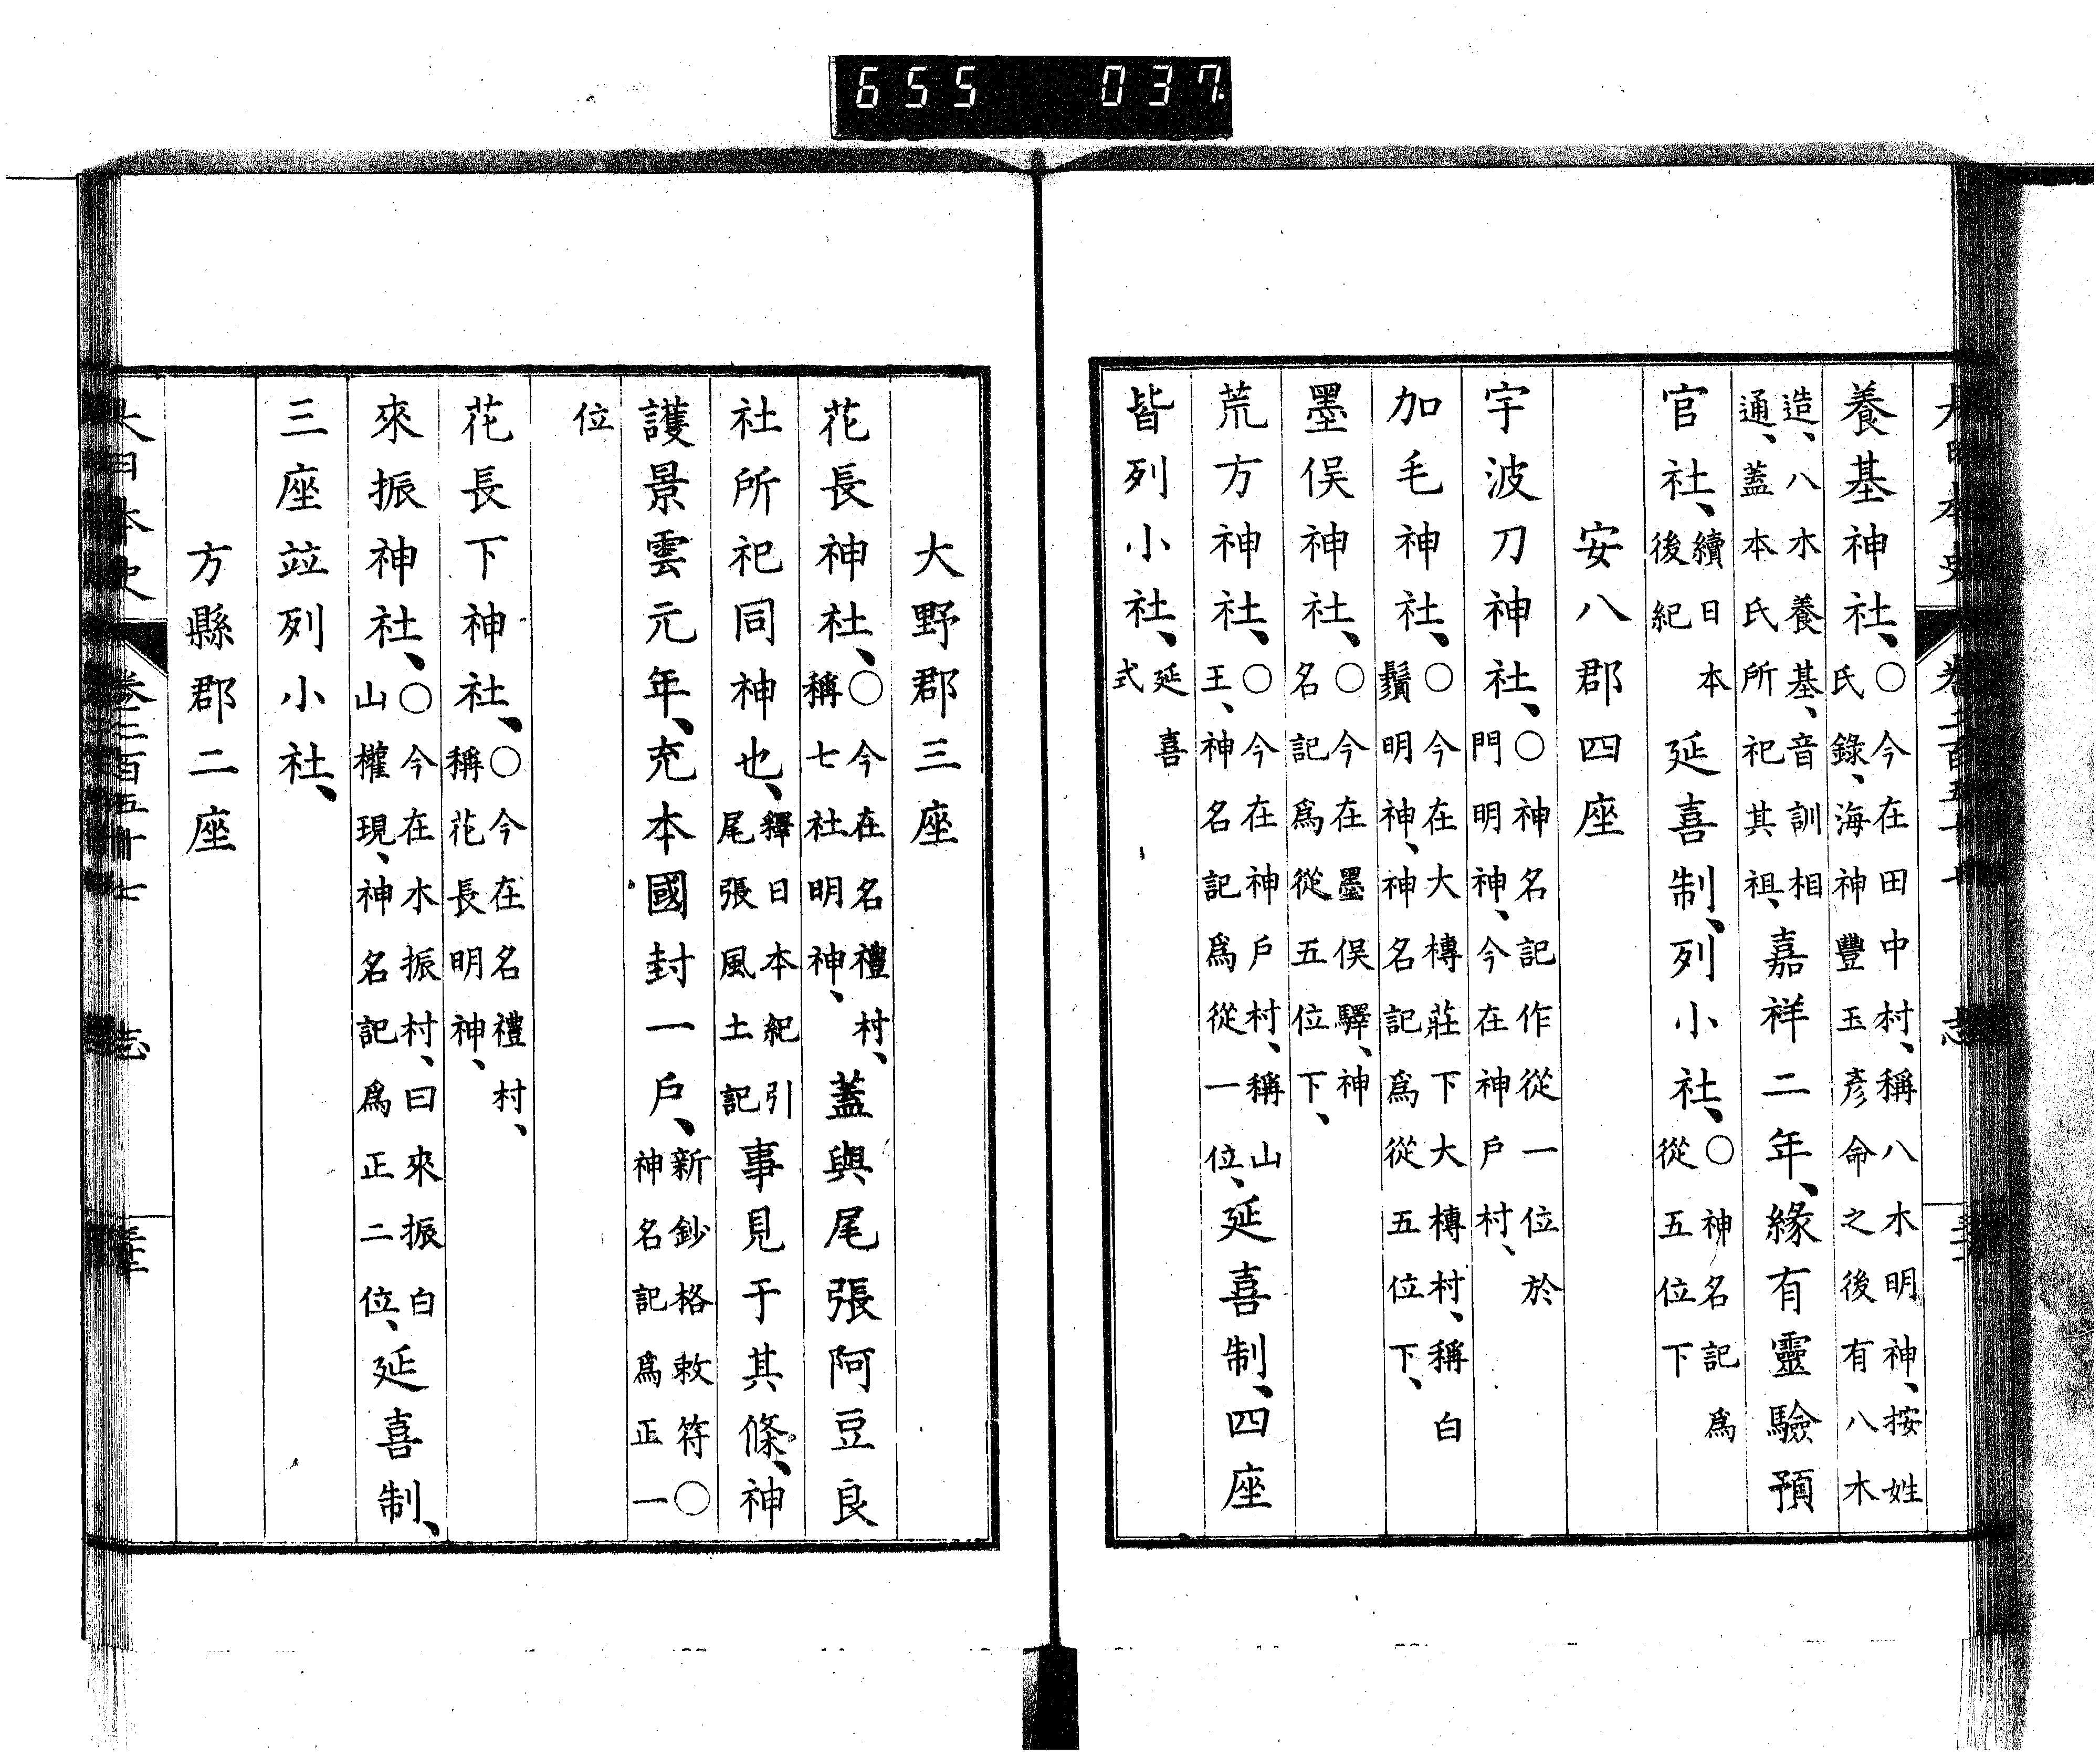 655 037
養基神社、○今在田中村、稱八木明神、按姓氏錄、海神豐玉彦命之後有八木
造、八木養基、音訓相通、蓋本氏所祀其祖、嘉祥二年、緣有靈驗預
官社、續日本後紀延喜制、列小社、○神名記爲從五位下
安八郡四座
宇波刀神社、○神名記作從一位於門明神、今在神戶村、
加毛神社、○今在大槫莊下大槫村、稱白鬚明神、神名記爲從五位下、
墨俣神社、○今在墨俣驛、神名記爲從五位下、
荒方神社、○今在神戶村、稱山王、神名記爲從一位、延喜制、四座
皆列小社、延喜式
大野郡三座
花長神社、○今在名禮村、稱七社明神、蓋與尾張阿豆良
社所祀同神也、釋日本紀引尾張風土記事見于其條、神
護景雲元年、充本國封一戶、新鈔格敕符○神名記爲正一
位
花長下神社、○今在名禮村、稱花長明神、
來振神社、○今在木振村、曰來振白山權現、神名記爲正二位、延喜制、
三座竝列小社、
方縣郡二座
大日本史 卷二百五十七 志